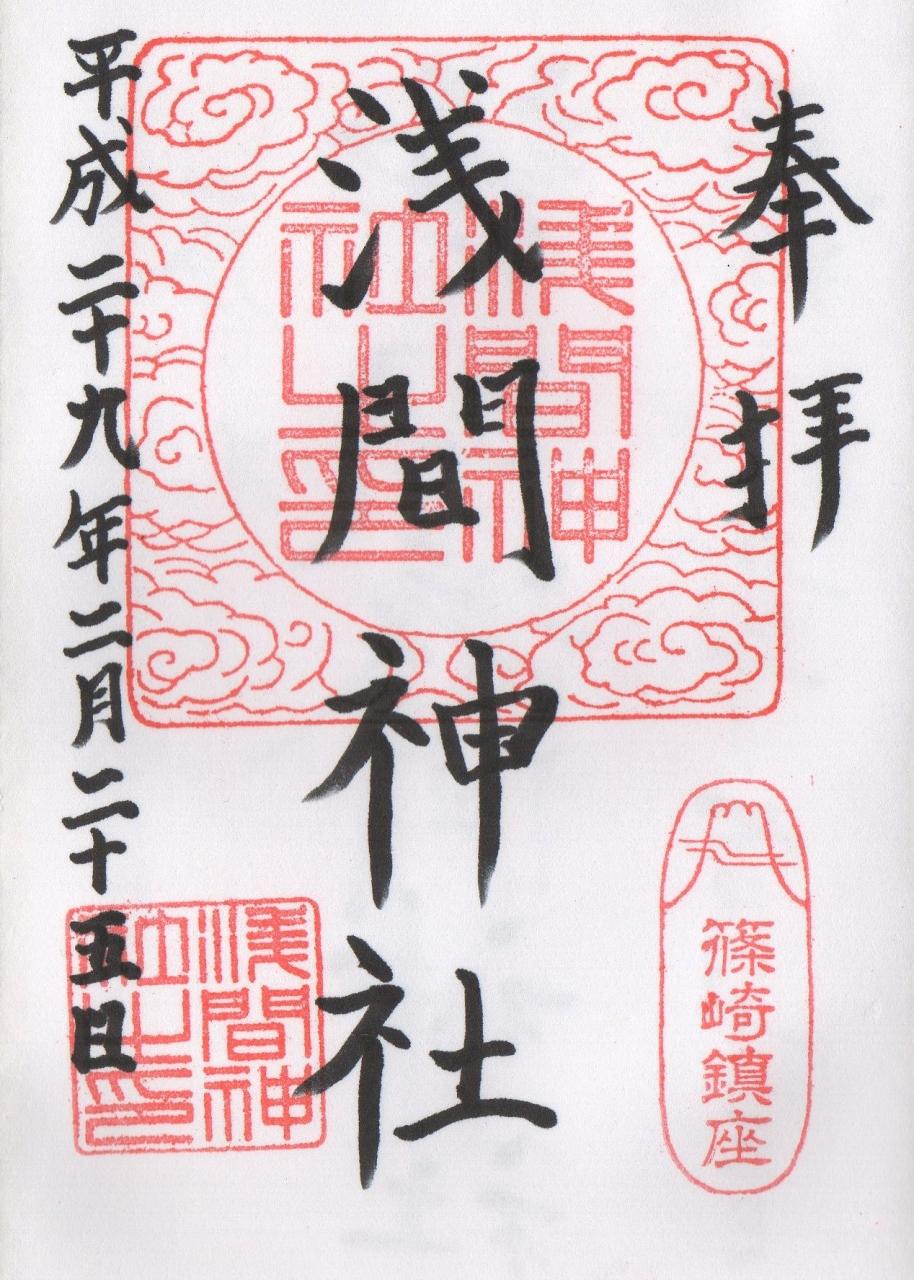 奉拝
浅間神社
平成二十九年二月二十五日
浅間神
社之印
篠崎鎮座
浅間神
社之印